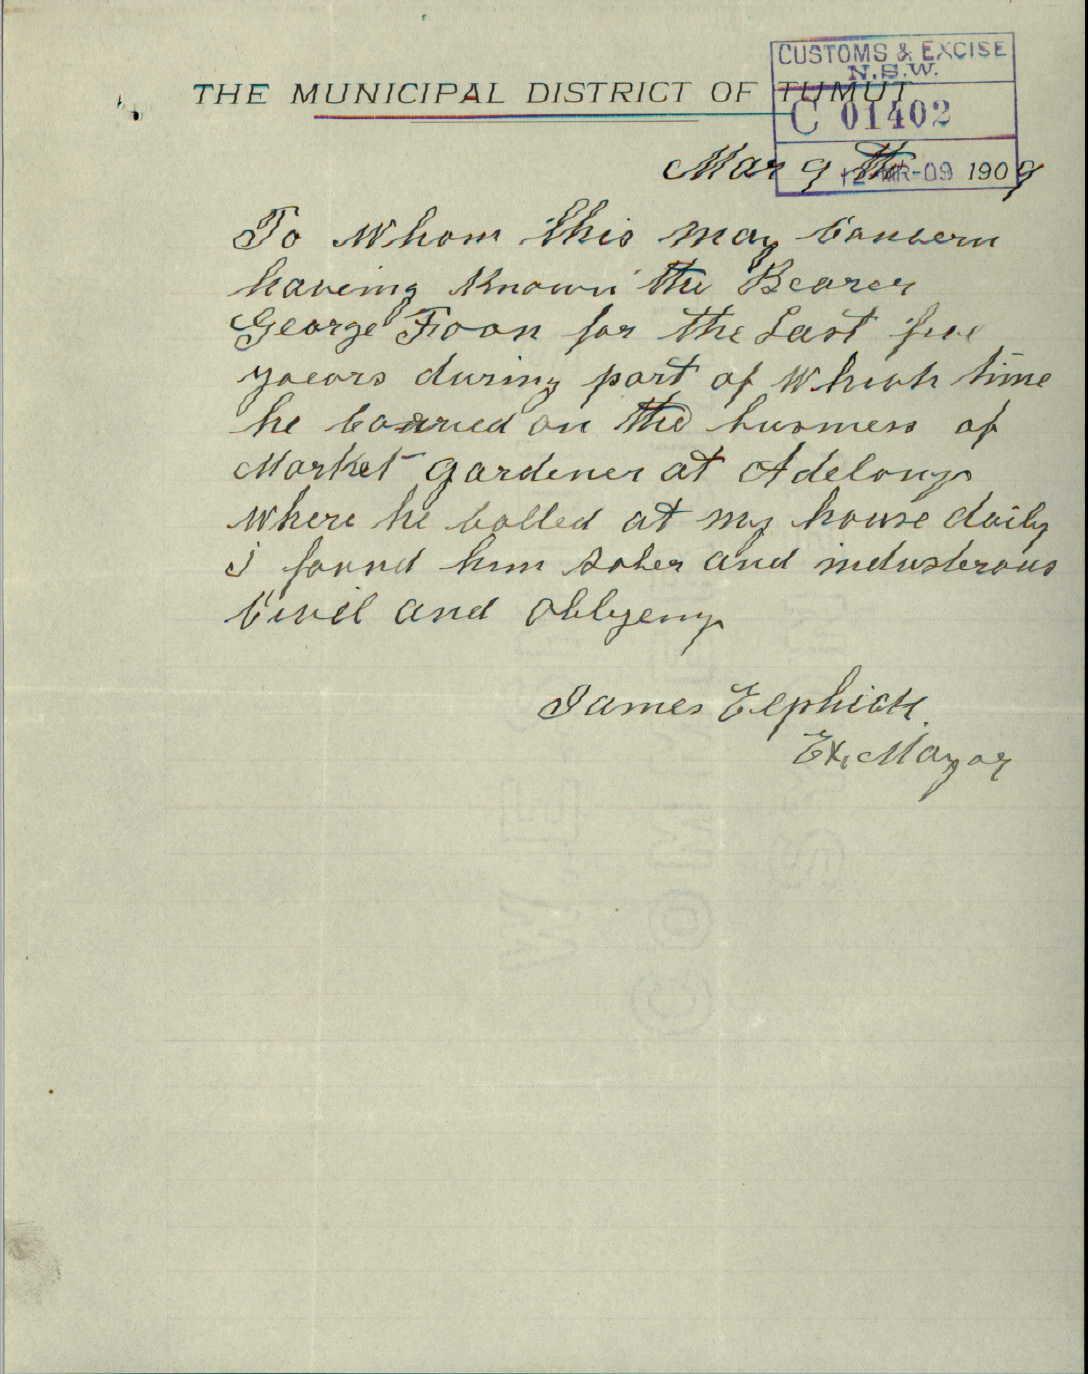 CUSTOMS & EXCISE
N.S.W.
THE MUNICIPAL DISTRICT OF TUMUT
C 01402
Mar 9 th 1909
12 MR-09
To Whom this may Concern
haveing Known the Bearer
George Foon for the Last five
yaears during part of Which time
he carried on the business of
Market Gardener at Adelong
Where he Called at my house daily
i found him sober and industerous
Civil and Obligeing
James Elphick
Ex Mayor